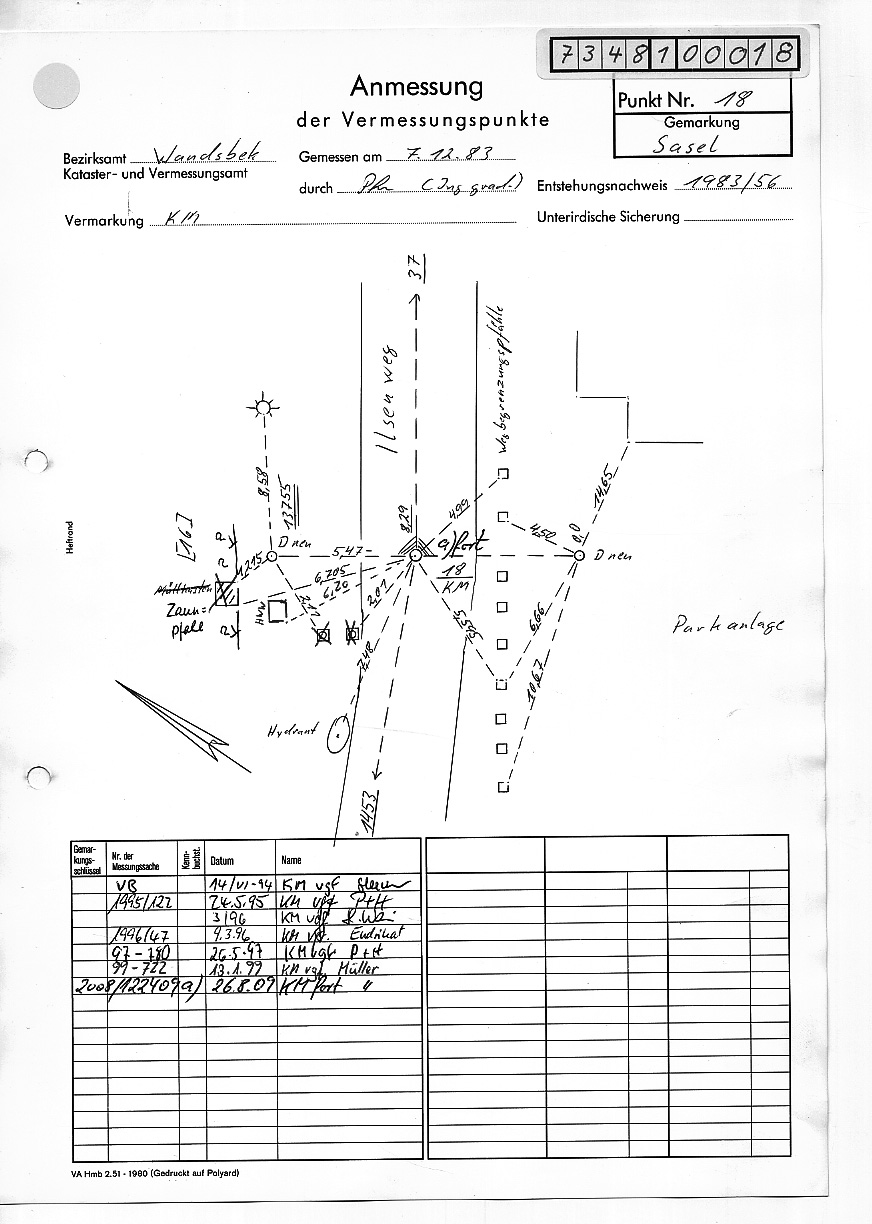 7348100018
Anmessung
der Vermessungspunkte
Punkt Nr. 18
Gemarkung
Sasel
Bezirksamt Wandsbek
Kataster- und Vermessungsamt
Gemessen am 7.12.83
durch (Ing grad.)
Entstehungsnachweis 1983/56
Vermarkung KM
Unterirdische Sicherung
37
Ilsenweg
Wegbegrenzungspfähle
8,58
13755
[16]
8,29
4,99
4,50
0,0
14,65
Heftrand
D neu
5,47
a) fort
D neu
1,215
6,705
6,20
18
KM
Zaun=
pfeile
2,17
2,01
6,66
Parkanlage
7,48
10,67
Hydrant
1453
Gemar-
kungs-
schlüssel
Nr. der
Messungssache
Kenn-
buchst.
Datum
Name
VB 14/VI-94 KM vgf
1995/122 24.5.95 KM vgf P+H
3/96 KM vgf
1996/47 9.3.96 KM vgf. Endrikat
97-180 26.5.97 KM vgf P+H
99-722 13.1.99 KM vgf Müller
2008/122409 a) 26.8.09 KM fort "
VA Hmb 2.51 - 1980 (Gedruckt auf Polyard)